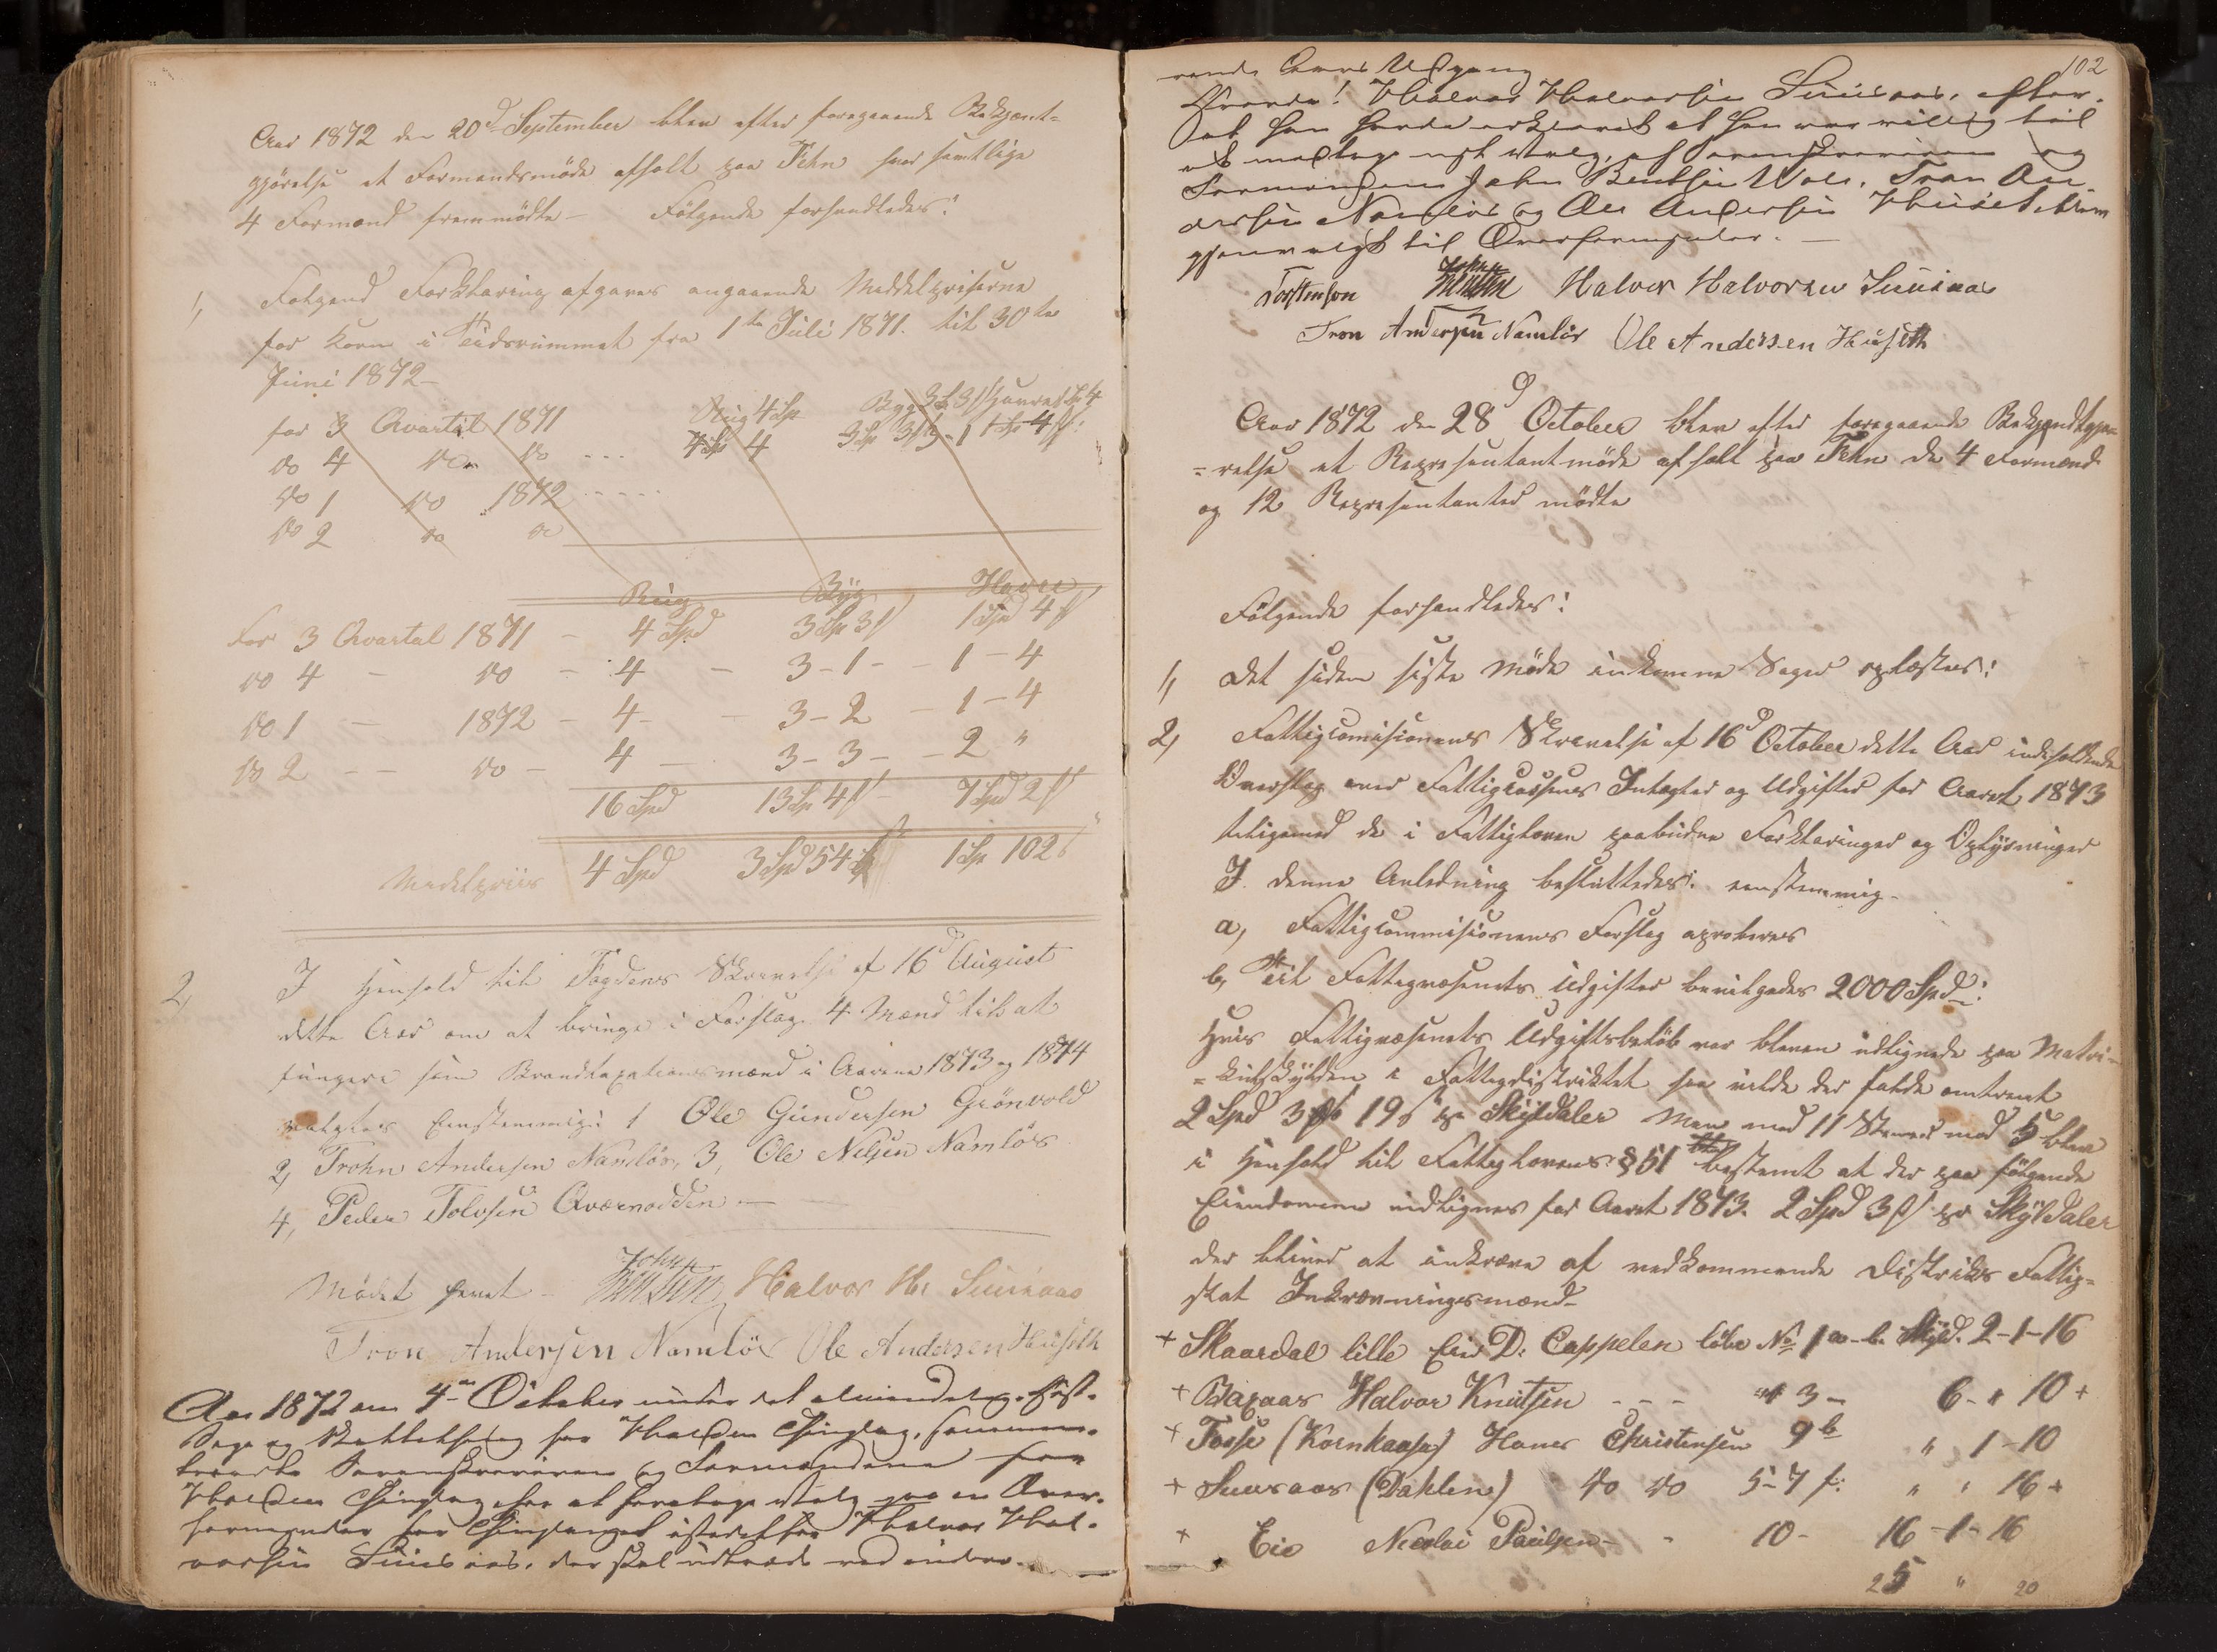 Aar 1872 den 20d September blev efter foregaaende Bekjent-
gjørelse et Formandsmøde afholt paa Fehn hvor samtlige
4 Formænd fremmødte - Følgende forhandledes:
1, Følgend Forklaring afgaves angaaende Meddelpriserne
for Korn i Tidsrummet fra 1te Juli 1871. til 30te
Juni 1872-
for 3 Qvartal 1871 Rug 4 Sp Byg 3 Sp 3
do 4 do do ... 4 Sp 4
do 1 do 1872 .....
do 2 do do
Rug Byg Havre
For 3 Qvartal 1871 - 4 Spd 3 Sp 3 1 Spd 4
do 4 - do - 4 - 3-1- - 1-4
do 1 - 1872 - 4 - 3-2 - 1-4
do 2 - - do - 4 - 3-3- - 2 "
16 Spd 13 Sp 4 7 Spd 2
Medelpriis 4 Spd 3 Spd 54 1 Sp 102
2, I Henhold til Fogdens Skrivelse af 16d August
dette Aar om at bringe i Forslag 4 Mænd til at
fungere som Brandtaxationsmænd i Aarene 1873 og 1874
valgtes Eenstemmig: 1 Ole Gundersen Grönvold
2, Trohn Andersen Namløs, 3, Ole Nelsen Namløs
4, Peder Tolvsen Qværnodden -
Mødet hævet - John Bentsen Halvor Hs Suusaas
Tron Andersen Namlös Ole Andersen Huseth
Aar 1872 den 4de October under det almindelige Høst-
Sage og Skatteting for Holden Thinglag, sammen-
traadte Sorenskriveren og Formændene for
Holden Thinglag for at foretage Valg paa en Over-
formynder for Thinglaget istedetfor Halvor Hal-
vorsen Suusaas, der skal udtræde ved indev-
102
rende Aars Udgang
Halvor Halvorsen Suusaas, efter-
at han havde erklæret at han var villig til
at modtage nyt Valg, af Sorenskriveren og
Formændene John Bentsen Wola, Tron An-
dersen Namløs og Ole Andersen Huset blev
gjenvalgt til Overformynder. -
Torstenson John Bentsen Halvor Halvorsen Suusaas
Tron Andersen Namlös Ole Andersen Huseth
Aar 1872 den 28d October blev efter foregaaende Bekjendtgjø-
=relse et Representantmøde afholt paa Fehn de 4 Formænd
og 12 Representanter mødte
Følgende forhandledes:
1, Det siden siste Møde indkomne Sager oplæstes:
2, Fattigcomisionens Skrivelse af 16d October dette Aar indeholdende
Overslag over Fattigcassens Intægter og Udgifter for Aaret 1873
tilligemed de i Fattigloven paabudne Forklaringer og Oplysninger
I denne Anledning besluttedes: eenstemmig-
a, Fattigcommisionens Forslag aproberes
b, Til Fattigvæsenets Udgifter bevilgedes 2000 Spd:
Hvis Fattigvæsenets Udgiftsbeløb var bleven udlignede paa Matri-
=kulskylden i Fattigdistriktet saa vilde der falde omtrent
2 Spd 3 19 pr Skyldaler Men med 11 Stemmer mod 5 blev
i Henhold til Fattiglovens § 51 bestemt at der paa følgende
Eiendomme udlignes for Aaret 1873. 2 Spd 3 pr Skyldaler
der bliver at inkræve af vedkommende Distrikts Fattig-
skat Inkrævningsmænd-
+ Skaardal lille Eier D. Cappelen løbe No 1 a-b. Skyld. 2-1-16
+ Halvor Knutsen - - - " 3 - 6 - " 10 +
+ Fosse (Kornkaasa) Hans Christensen 9 b " 1-10
+ Suusaas (Dahlen) do do 5-7 f: " " 16 +
+ Eie Nicolai Paulsen - - 10 - 16-1-16
25 " 20